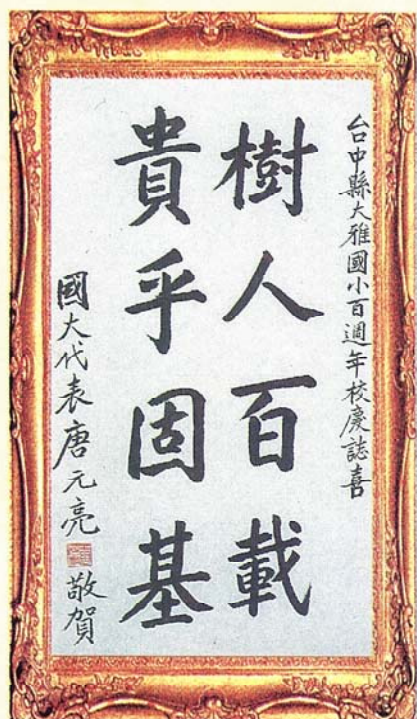 台中縣大雅國小百週年校慶誌喜
樹人百載
貴乎固基
國大代表唐元亮敬賀